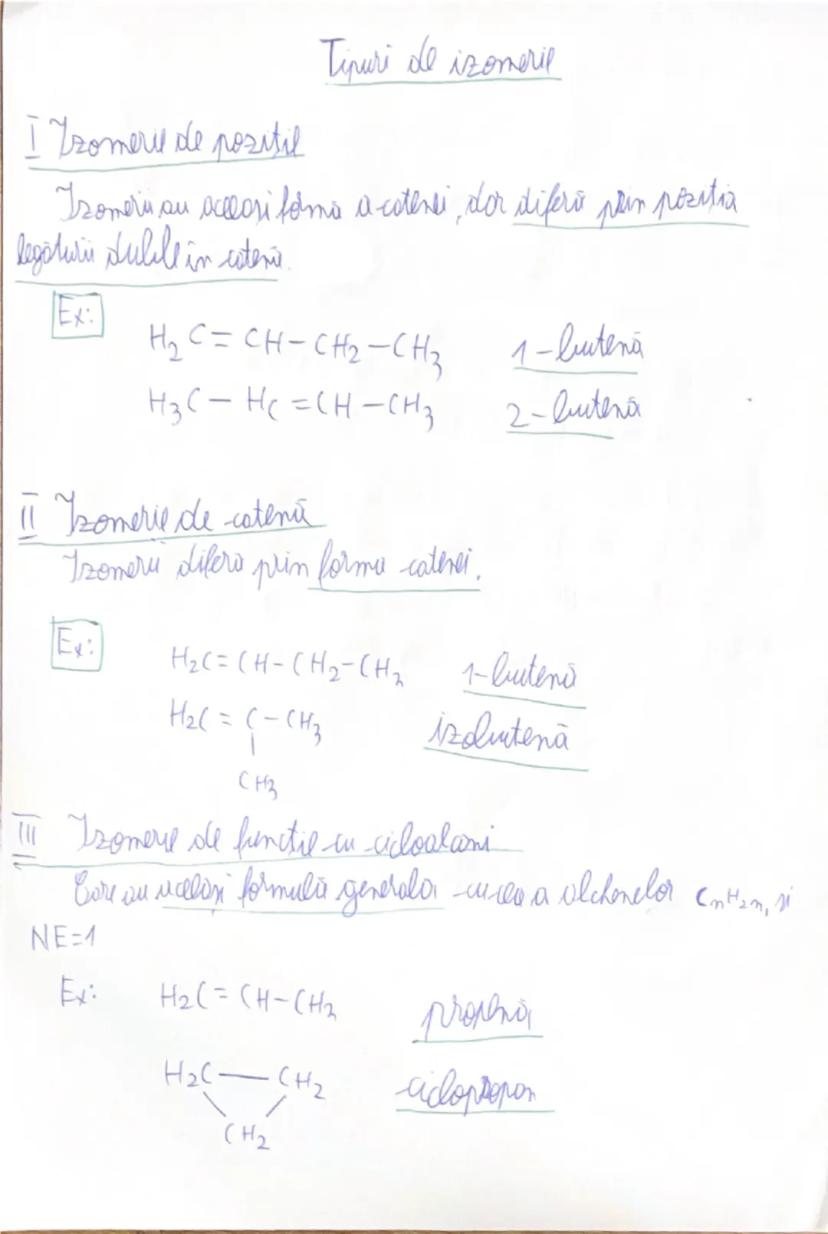 Tipuri de izomerie
I Izomerie de poziție
Izomerii au aceeași formă a catenei, dar diferă prin poziția
legăturii duble în catenă.
Ex:
H₂C=CH-CH₂-CH₃ 1-butenă
H₃C-HC=CH-CH₃ 2-butenă
II Izomerie de catenă
Izomerii diferă prin forma catenei.
Ex:
H₂C=CH-CH₂-CH₃ 1-butenă
H₂C=C-CH₃ izobutenă
|
CH₃
III Izomerie de funcție cu cicloalcani
Care au aceeași formulă generală cu cea a alchenelor CₙH₂ₙ, și
NE=1
Ex: H₂C=CH-CH₃ propenă
H₂C — CH₂ ciclopropan
\ /
CH₂